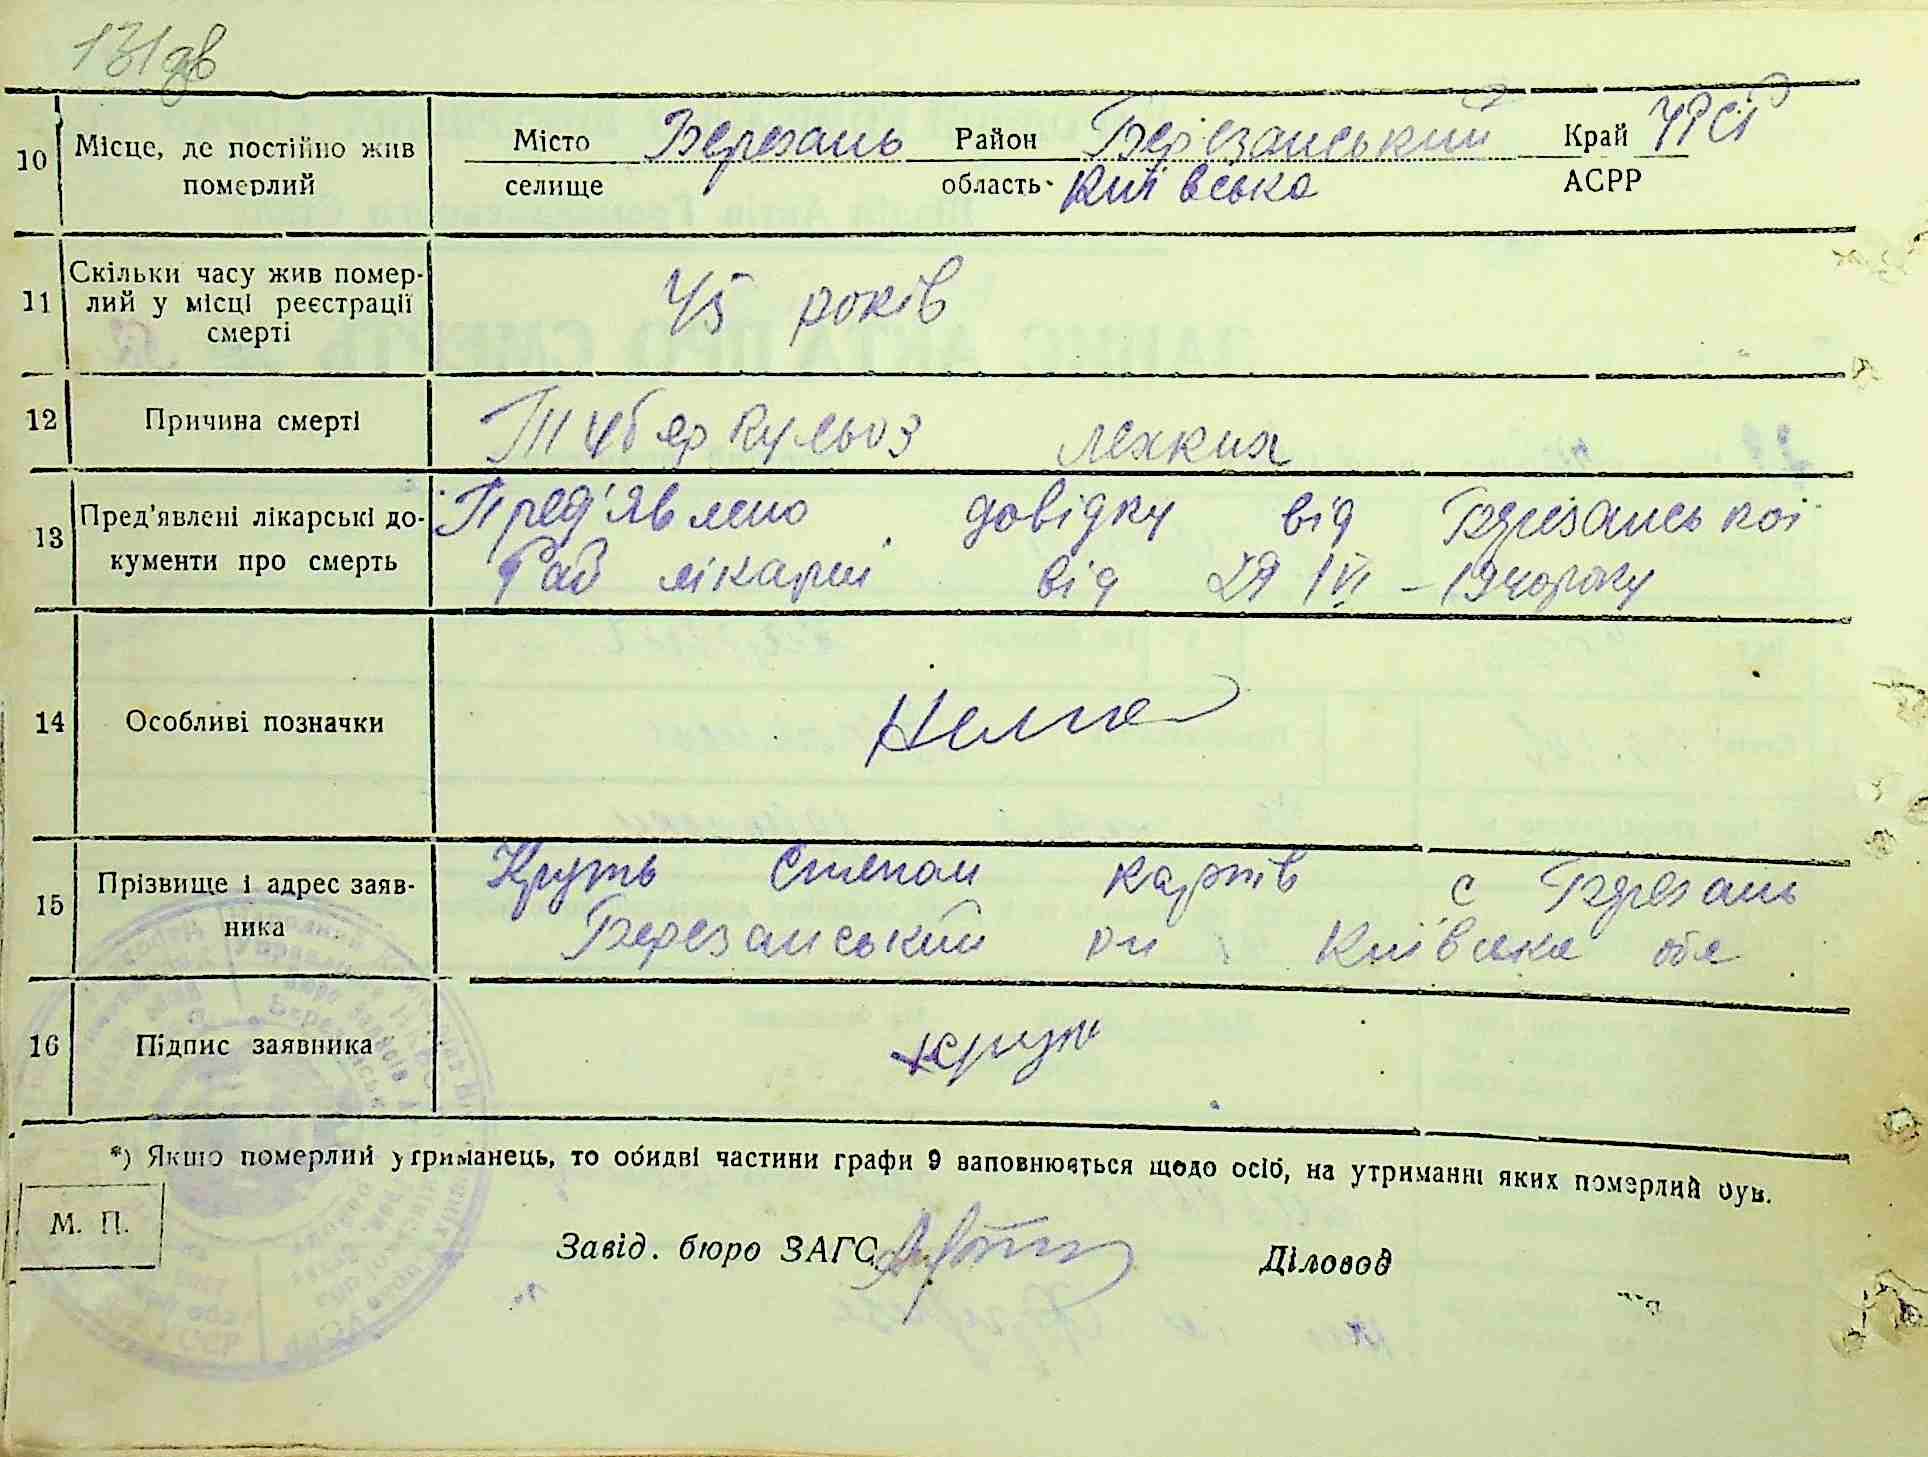 131 зв
10 Місце, де постійно жив померлий
Місто селище Березань Район Березанський Край УРСР
область Київська АСРР
11 Скільки часу жив померлий у місці реєстрації смерті
45 років
12 Причина смерті
Туберкульоз легких
13 Пред'явлені лікарські документи про смерть
Пред'явлено довідку від Березанської
Рай лікарні від 29 IVI - 1940 року
14 Особливі позначки
Нема
15 Прізвище і адрес заявника
Круть Степан с Березань
Березанський рн Київська обл
16 Підпис заявника
Круть
*) Якшо померлий утриманець, то обидві частини графи 9 заповнюється щодо осіб, на утриманні яких померлий був.
М. П.
Завід. бюро ЗАГС
Діловод